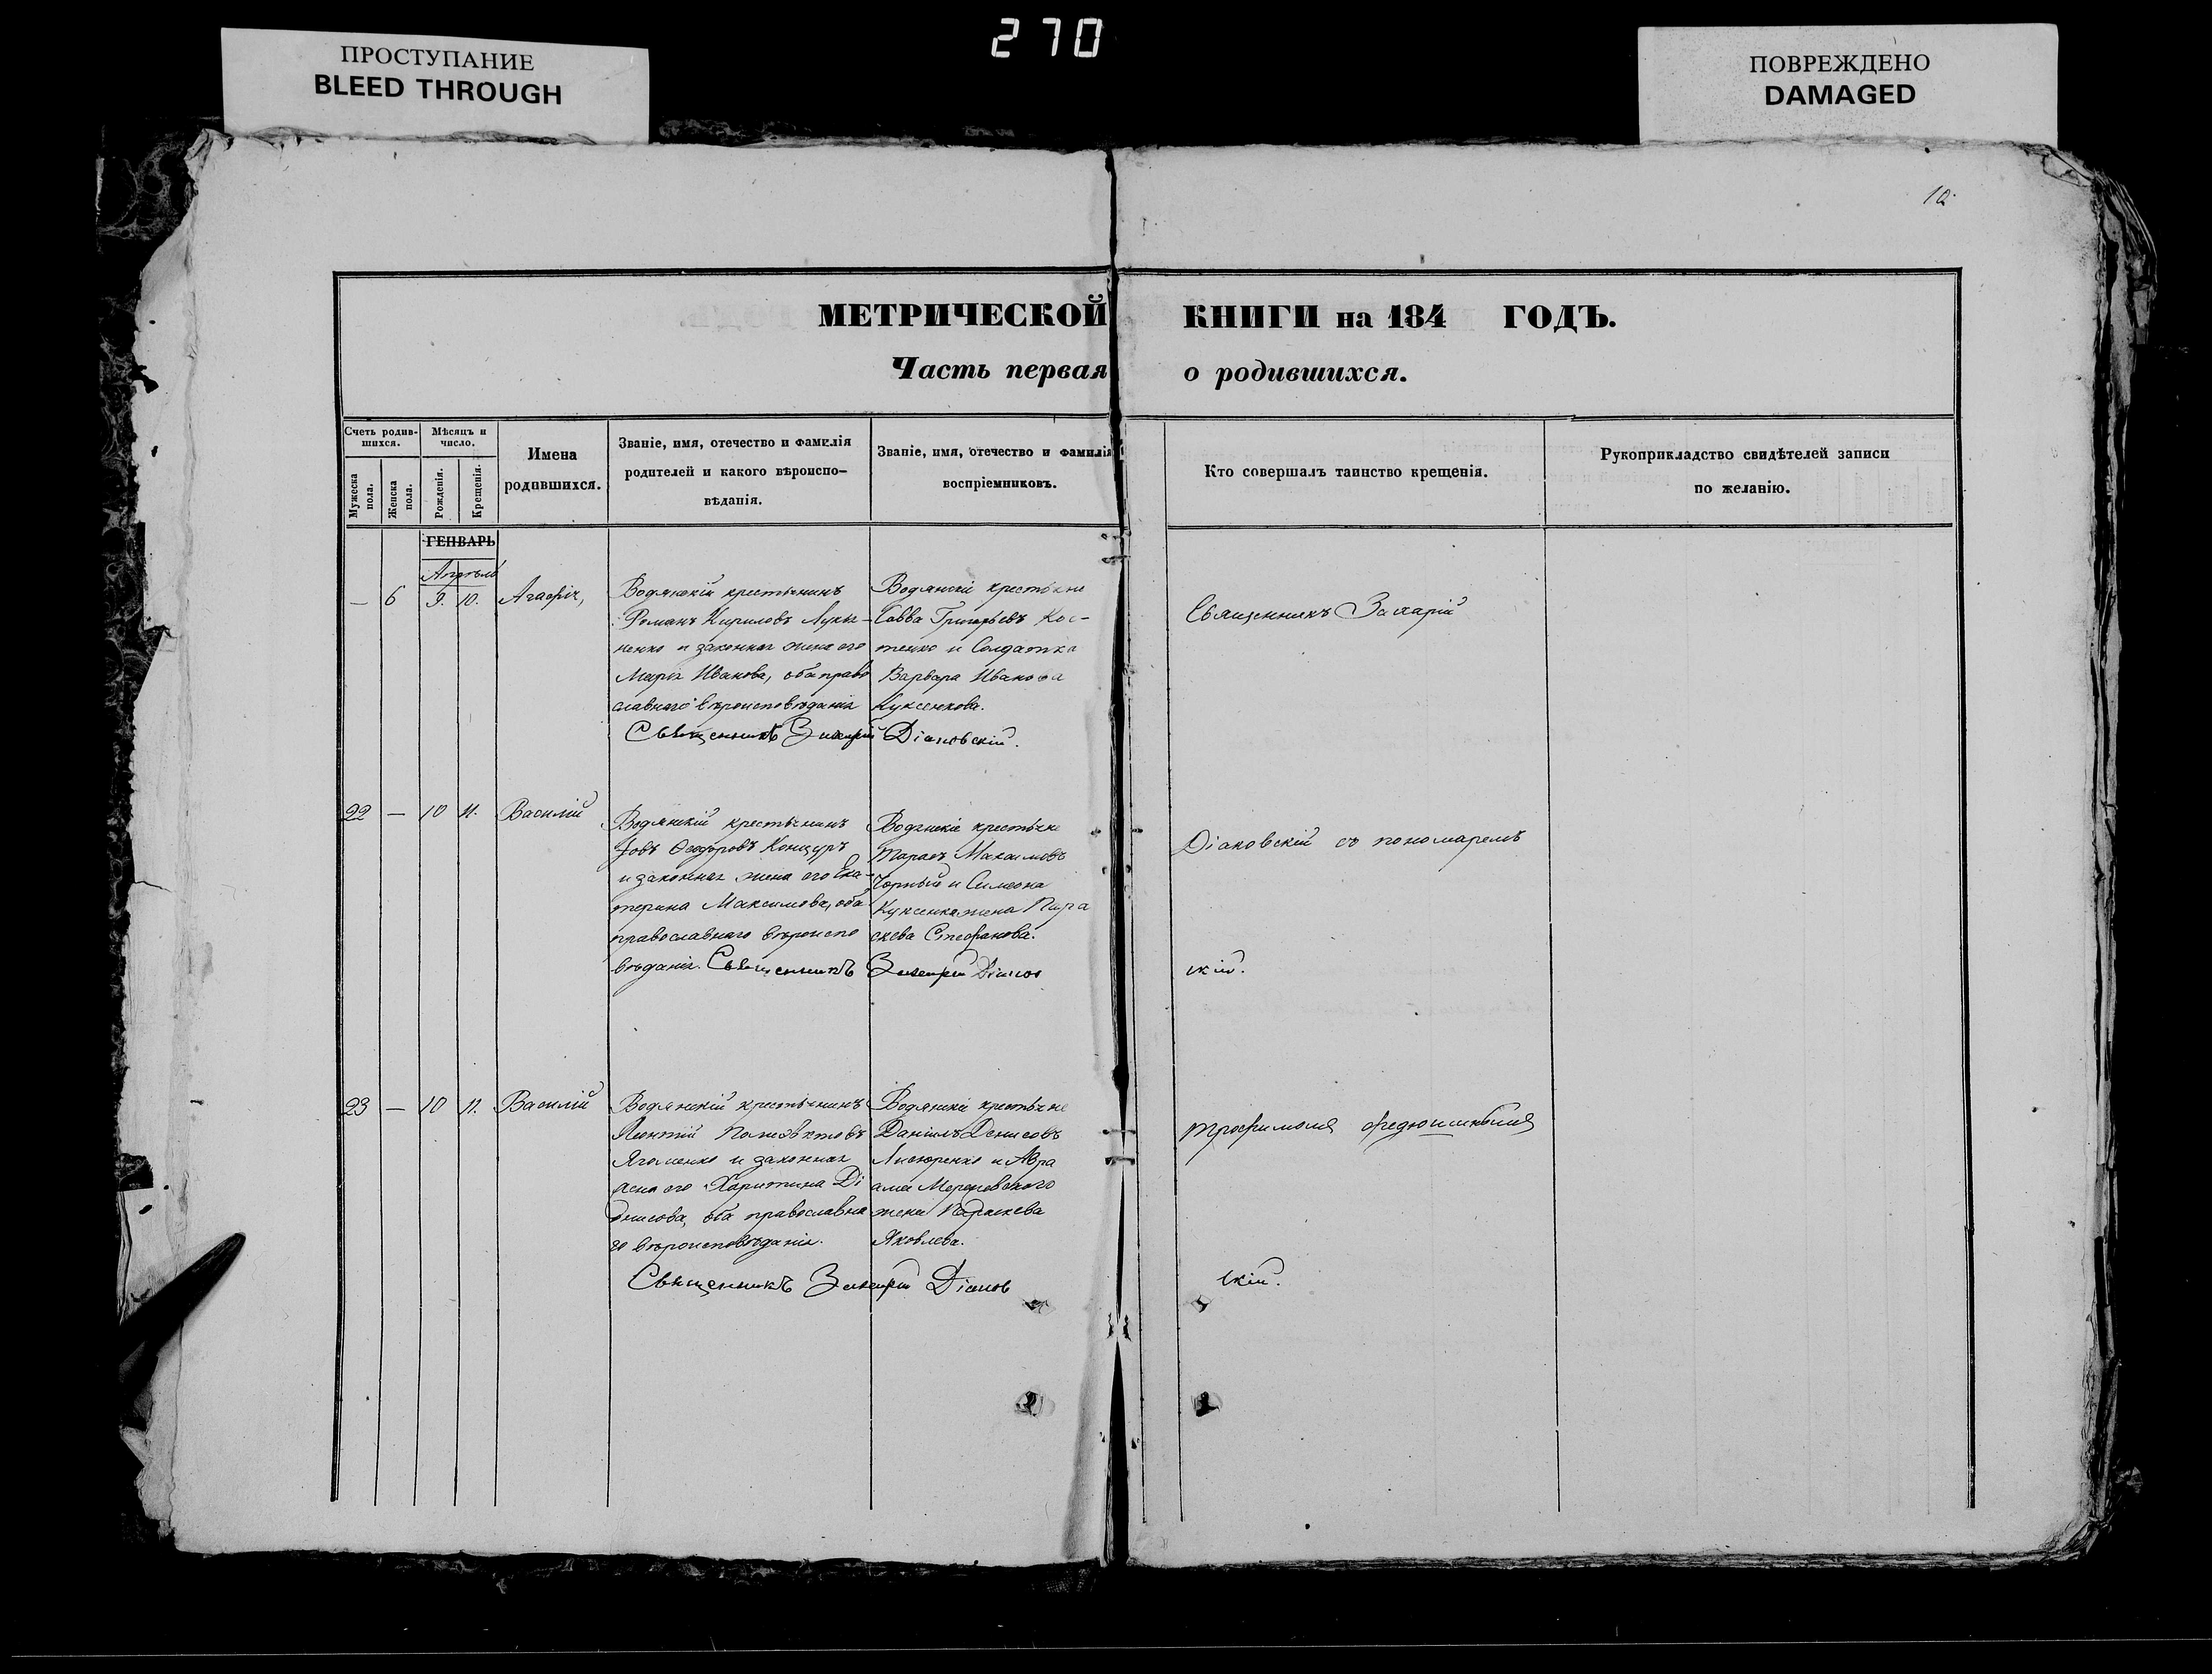 270
ПРОСТУПАНИЕ
BLEED THROUGH
ПОВРЕЖДЕНО
DAMAGED
10.
МЕТРИЧЕСКОЙ КНИГИ на 184 ГОДЪ.
Часть первая о родившихся.
Счетъ родив-
шихся.
Мужеска пола.
Женска пола.
Мѣсяцъ и
число.
Рожденія.
Крещенія.
Имена
родившихся.
Званіе, имя, отечество и фамилія
родителей и какого вѣроиспо-
вѣданія.
Званіе, имя, отечество и фамилія
воспріемниковъ.
Кто совершалъ таинство крещенія.
Рукоприкладство свидѣтелей записи
по желанію.
ГЕНВАРЬ
Апрѣль
— 6 9. 10. Агафія,
Водянскій крестьянинъ
Романъ Кириловъ Лукья-
ненко и законная жена его
Марія Иванова, оба право
славнаго вѣроисповѣданія
Водянскіе крестьяне
Савва Григорьевъ Кос-
тенко и Солдатка
Варвара Иванова
Куксенкова.
Священникъ Захарій Діаковскій.
Священникъ Захарій
22 — 10 11. Василій
Водянскій крестьянинъ
Іовъ Ѳеодоровъ Концуръ
и законная жена его Ека-
терина Максимова, оба
православнаго вѣроиспо
вѣданія.
Водянскіе крестьяне
Тарасъ Максимовъ
Чорный и Симеона
Куксенка жена Пара
скева Стефанова.
Священникъ Захарій Діаков
скій.
Діаковскій съ пономаремъ
23 — 10 11. Василій
Водянскій крестьянинъ
Леонтій Полиэктовъ
и законная
жена его Харитина Ді
онисова, оба православна
го вѣроисповѣданія.
Водянскіе крестьяне
Даніилъ Денисовъ
и Авра
ама
жена Параскева
Яковлева.
Священникъ Захарій Діаков
скій.
Трофимомъ